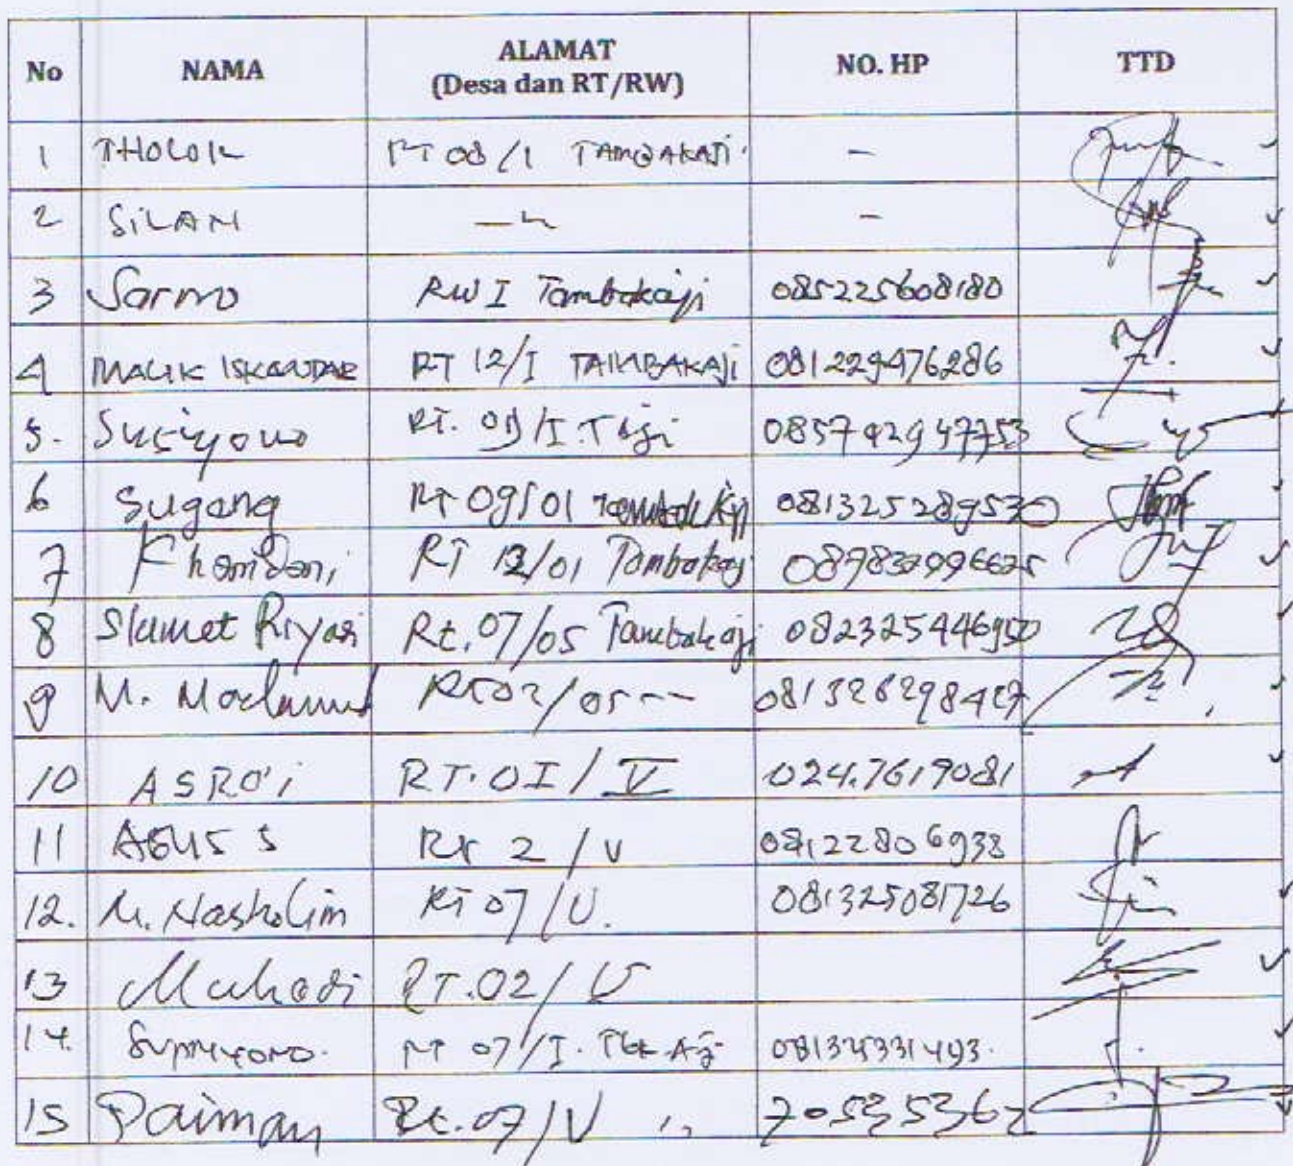 No NAMA ALAMAT (Desa dan RT/RW) NO. HP TTD
1 THOLOK RT 08/1 TAMBAKAJI. -
2 SILAN -
3 Sarmo RW I Tambakaji 085225608180
4 MALIK ISKANDAR RT 12/I TAMBAKAJI 081229476286
5. RT. 09/I. 085742947753
6 Sugeng RT 09/01 081325289530
7 Khamdani RT 12/01 Tambakaji
8 Slamet Riyadi Rt. 07/05 Tambakaji
9 M. RT 02/05 -- 081326298427
10 ASRO'i RT. 0I / V 024.7619081
11 AGUS S RT 2 / V 08122806933
12. M. Nasholim RT 07 / V. 081325081726
13 Muhadi RT. 02 / V
14. Supriyono. RT 07/I. 
15 Paiman Rt. 07/V ,, 70535367